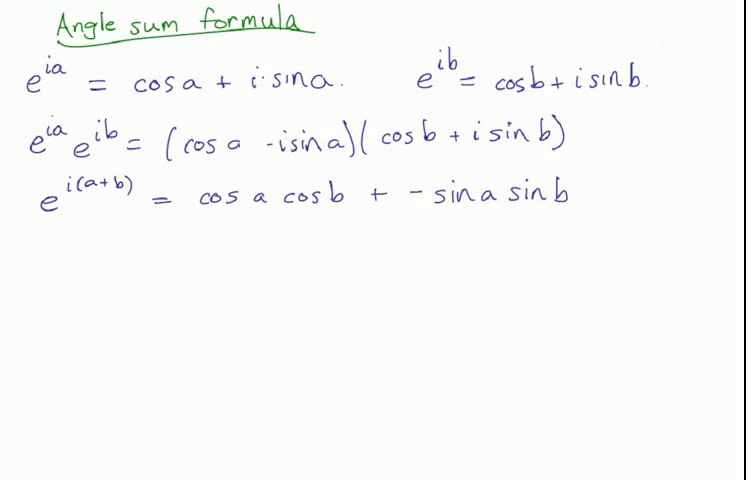 Angle sum formula
e^{ia} = cos a + i·sin a. e^{ib} = cos b + i sin b.
e^{ia} e^{ib} = (cos a - i sin a)(cos b + i sin b)
e^{i(a+b)} = cos a cos b + - sin a sin b